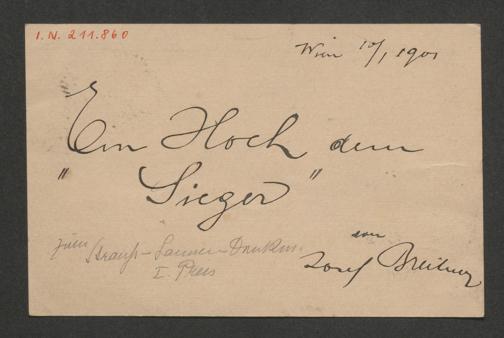 I. N. 211.860
Wien 10/1 1901
Ein Hoch dem
"Sieger"
von
Josef Breitner
zum Strauß-Lanner-Denkm.
I. Preis